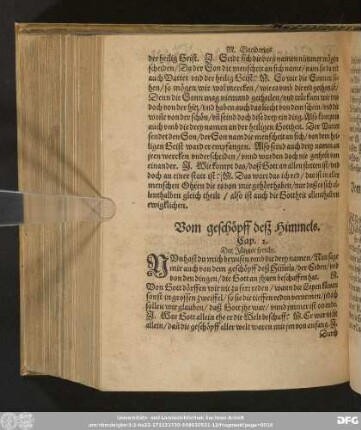 M. Elucidarius
der heilig Geist. J. Seidt sich die drey namen nimmer mögē
scheiden / Da der Son die menscheit an sich name / nam sie da nit
auch Vatter vnd der heilig Geist? M. So wir die Sonnen se-
hen / so mögen wir wol mercken / wie es vmb die red gethan:
Denn die Sonn mag niemand getheilen / vnd
doch von der hitz / vnd haben auch das liecht von dem schein / vnd die
weile von der schön / vñ sind doch diese drey ein ding. Also
auch vmb die drey namen der heiligen Gottheit. Der Vatter
sendet den Son / der Son nam die menscheit an sich / von dem hei-
ligen Geist ward er empfangen. Also sind auch drey namen an
jren wercken vnderscheiden / vnnd wurden doch nie getheilt von
einander. J. Wie kompt das / daß Gott an allen stetten ist / vnd
doch an einer statt ist? M. Das wort das ich red / das ist aller
menschen Ohren die es von mir gehört haben / nur daß es sich al-
lenthalben gleich theile / also ist auch die Gottheit allenthalben
ewigklichen.
Vom geschöpff deß Himmels.
Cap. 2.
Der Jünger sprich.
NVn hast du mich bewisen vmb die drey namen / Nun sage
mir auch von dem geschöpff deß Himels / der Erden / vnd
von den dingen / die Gott an jhnen beschaffen hat. M.
Von Gott dörffen wir nit zu ferr reden / wann die Leyen kämen
sonst in grossen zweiffel / so sie die tieffen reden vernemen / jedoch
sollen wir glauben / daß Gott jhe war / vnnd jmmer ist on ende.
J. War Gott allein ehe er die Welt beschuff? M. Er war nit
allein / dañ die geschöpff aller welt waren mit jm von anfang. J.
Darff
Universitäts- und Landesbibliothek Sachsen-Anhalt
DFG